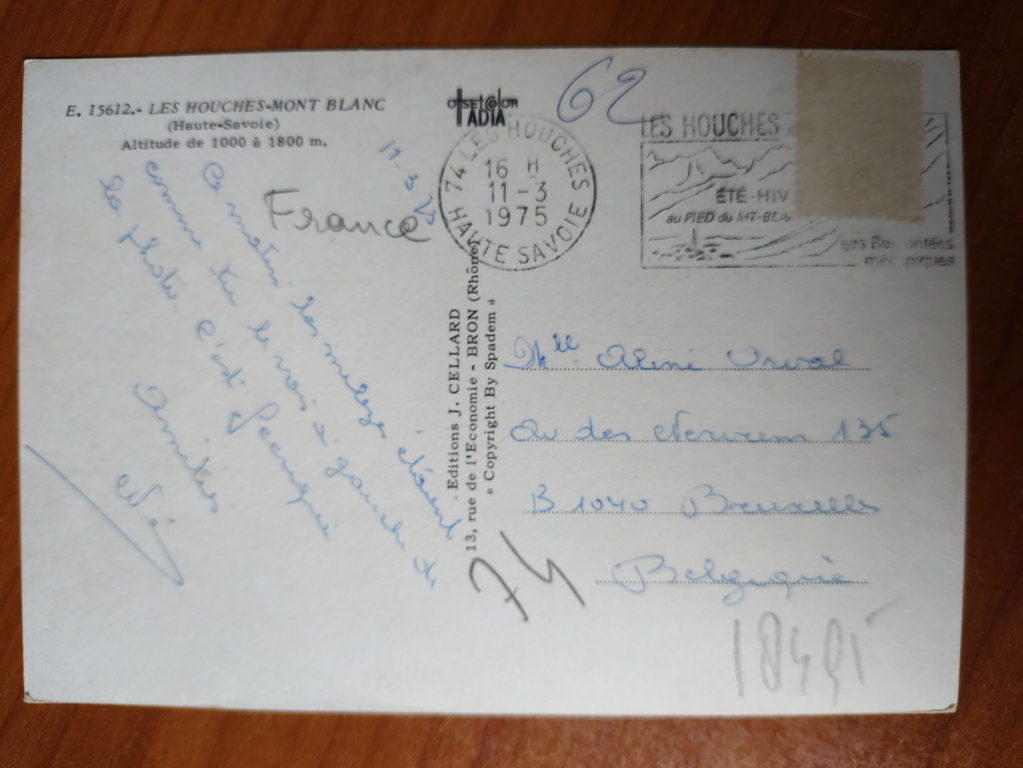 E. 15612.- LES HOUCHES-MONT BLANC
(Haute-Savoie)
Altitude de 1000 à 1800 m.
11.3.75
France
Ce matin les étaient
comme tu le vois à gauche de
la photo. C'est
Amitiés
74 LES HOUCHES
16 H
11-3
1975
HAUTE SAVOIE
62
LES HOUCHES
ÉTÉ-HIV
au PIED du MT-BLA
ses Remontées
mécaniques
Editions J. CELLARD
13, rue de l'Economie - BRON (Rhône)
« Copyright By Spadem »
Mlle
Av des 135
B 1040 Bruxelles
Belgique
74